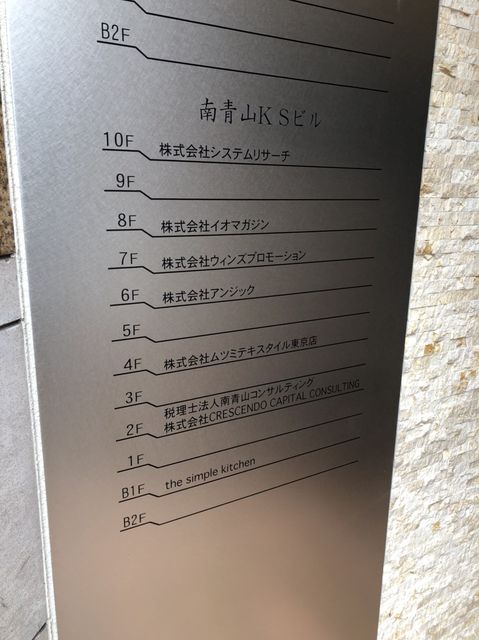 B2F
南青山KSビル
10F 株式会社システムリサーチ
9F
8F 株式会社イオマガジン
7F 株式会社ウィンズプロモーション
6F 株式会社アンジック
5F
4F 株式会社ムツミテキスタイル東京店
3F
税理士法人南青山コンサルティング
2F 株式会社CRESCENDO CAPITAL CONSULTING
1F
B1F the simple kitchen
B2F